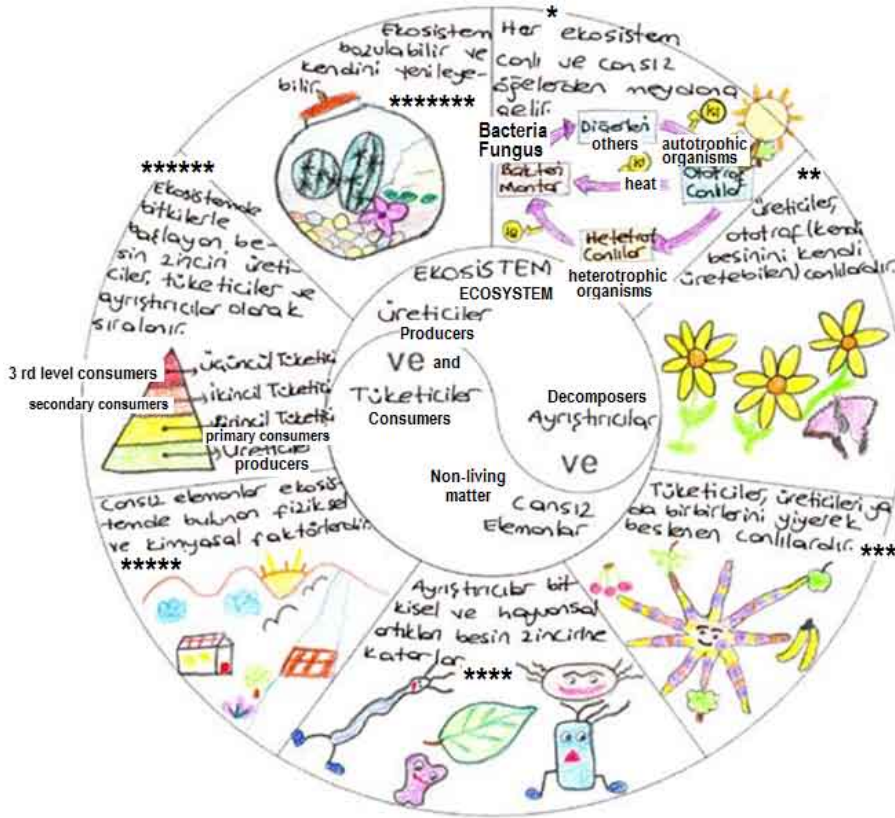 *
Her ekosistem
canlı ve cansız
öğelerden meydana
gelir.
Bacteria
Fungus
Diğerleri
others
autotrophic
organisms
ısı
Bakteri
Mantar
ısı
heat
Ototrof
Canlılar
ısı
Heterotrof
Canlılar
heterotrophic
organisms
**
Üreticiler,
ototraf (kendi
besinini kendi
üretebilen) canlılardır.
Tüketiciler, üreticileri ya
da birbirlerini yiyerek
beslenen canlılardır.
***
Ayrıştırıcılar bit-
kisel ve hayvansal
artıkları besin zincirine
katarlar
****
Cansız elemanlar ekosis-
temde bulunan fiziksel
ve kimyasal faktörlerdir.
*****
******
Ekosistemde
bitkilerle
başlayan be-
sin zinciri üreti-
ciler, tüketiciler ve
ayrıştırıcılar olarak
sıralanır.
3 rd level consumers
Üçüncül Tüketici
secondary consumers
İkincil Tüketici
Birincil Tüketici
primary consumers
Üretici
producers
Ekosistem
bozulabilir ve
kendini yenileye-
bilir.
*******
EKOSİSTEM
ECOSYSTEM
Üreticiler
Producers
ve and
Tüketiciler
Consumers
Decomposers
Ayrıştırıcılar
ve
Non-living
matter
Cansız
Elemanlar